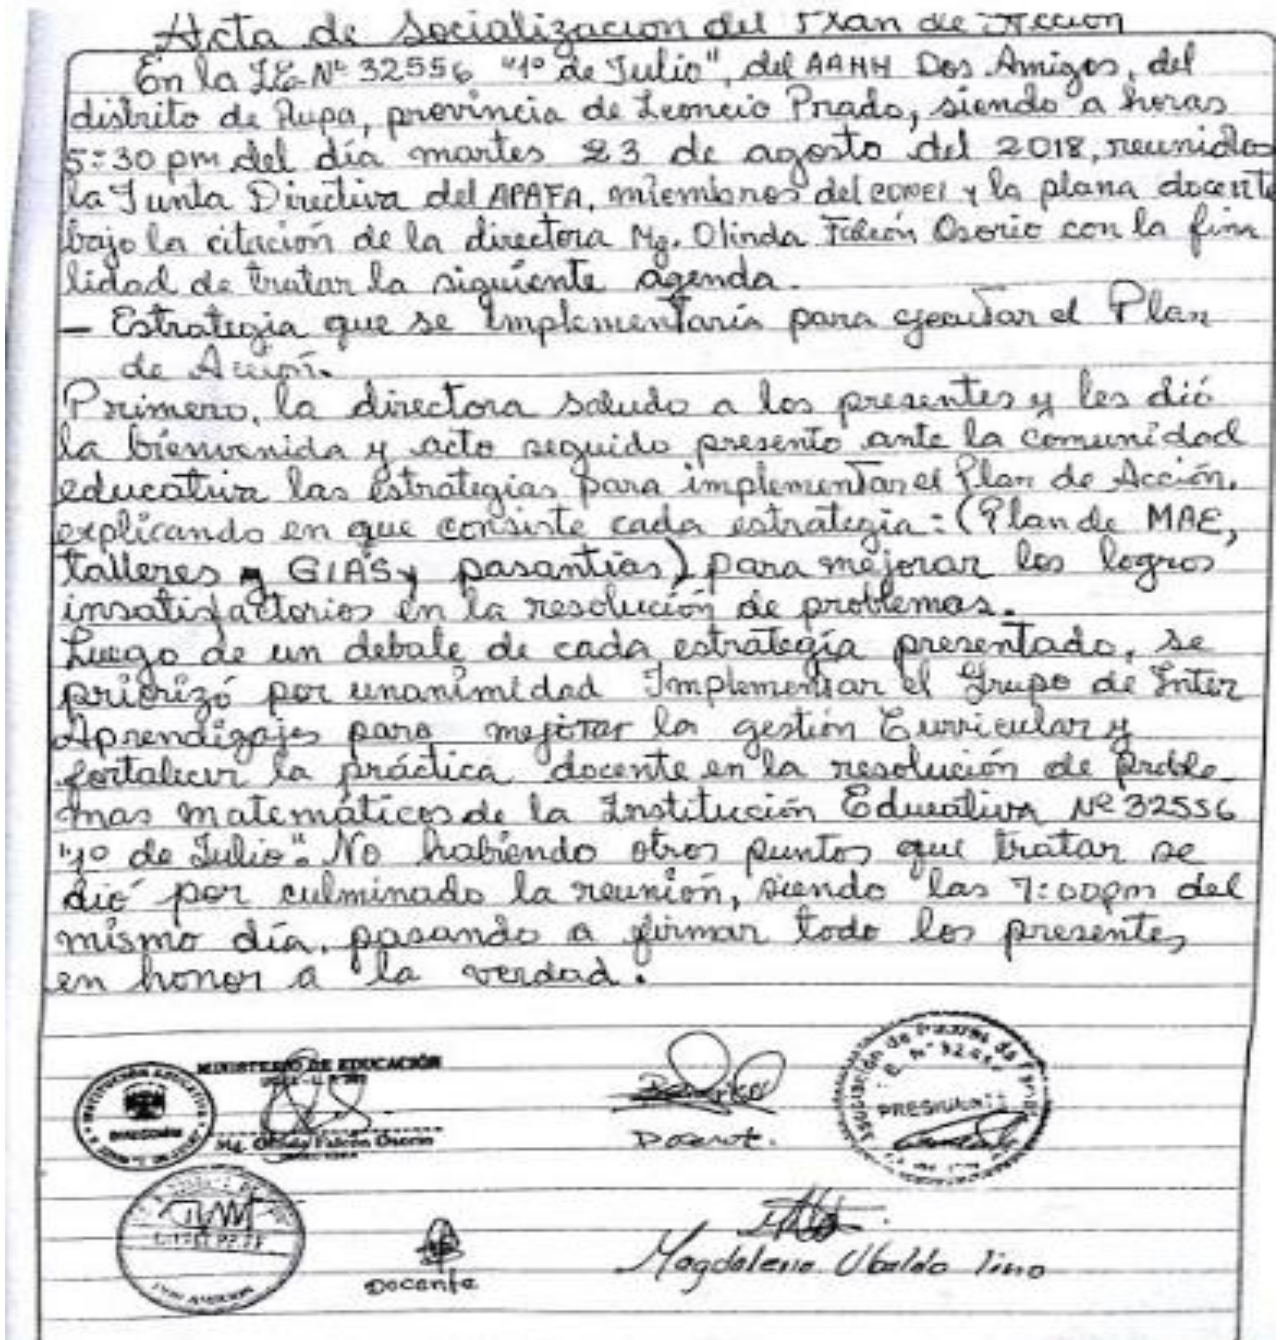 Acta de Socialización del Plan de Acción
En la I.E. Nº 32556 "1º de Julio", del AAHH Dos Amigos, del
distrito de Rupa, provincia de Leoncio Prado, siendo a horas
5:30 pm del día martes 23 de agosto del 2018, reunidos
la Junta Directiva del APAFA, miembros del CONEI y la plana docente
bajo la citación de la directora Mg. Olinda Falcón Osorio con la fina
lidad de tratar la siguiente agenda.
- Estrategia que se implementaría para ejecutar el Plan
de Acción.
Primero, la directora saludo a los presentes y les dió
la bienvenida y acto seguido presento ante la comunidad
educativa las estrategias para implementar el Plan de Acción,
explicando en que consiste cada estrategia: (Plan de MAE,
talleres y GIAS y pasantías) para mejorar los logros
insatisfactorios en la resolución de problemas.
Luego de un debate de cada estrategia presentado, se
priorizó por unanimidad Implementar el Grupo de Inter
Aprendizajes para mejorar la gestión Curricular y
fortalecer la práctica docente en la resolución de proble-
mas matemáticos de la Institución Educativa Nº 32556
"1º de Julio". No habiendo otros puntos que tratar se
dió por culminado la reunión, siendo las 7:00pm del
mismo día, pasando a firmar todo los presentes
en honor a la verdad.
MINISTERIO DE EDUCACIÓN
INSTITUCIÓN EDUCATIVA
DIRECCIÓN
Mg. Olinda Falcón Osorio
DIRECTORA
Docente.
Asociación de Padres de Familia
PRESIDENTE
Docente
Magdalena Ubaldo Lino